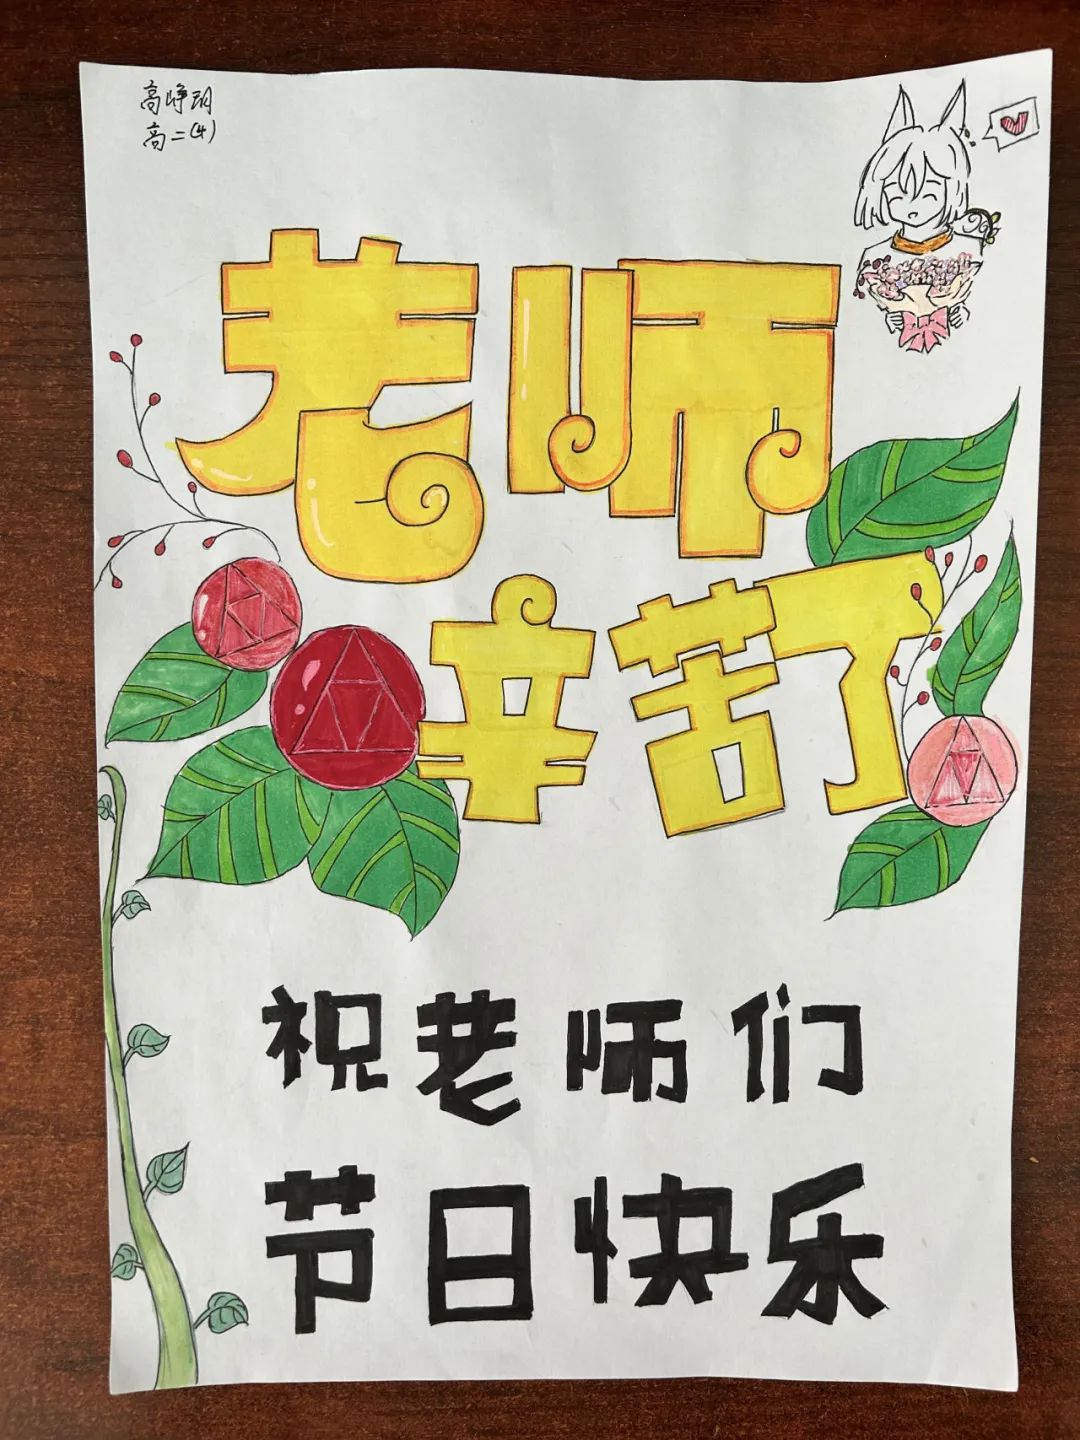 高峥玥
高二(4)
老师
辛苦了
祝老师们
节日快乐